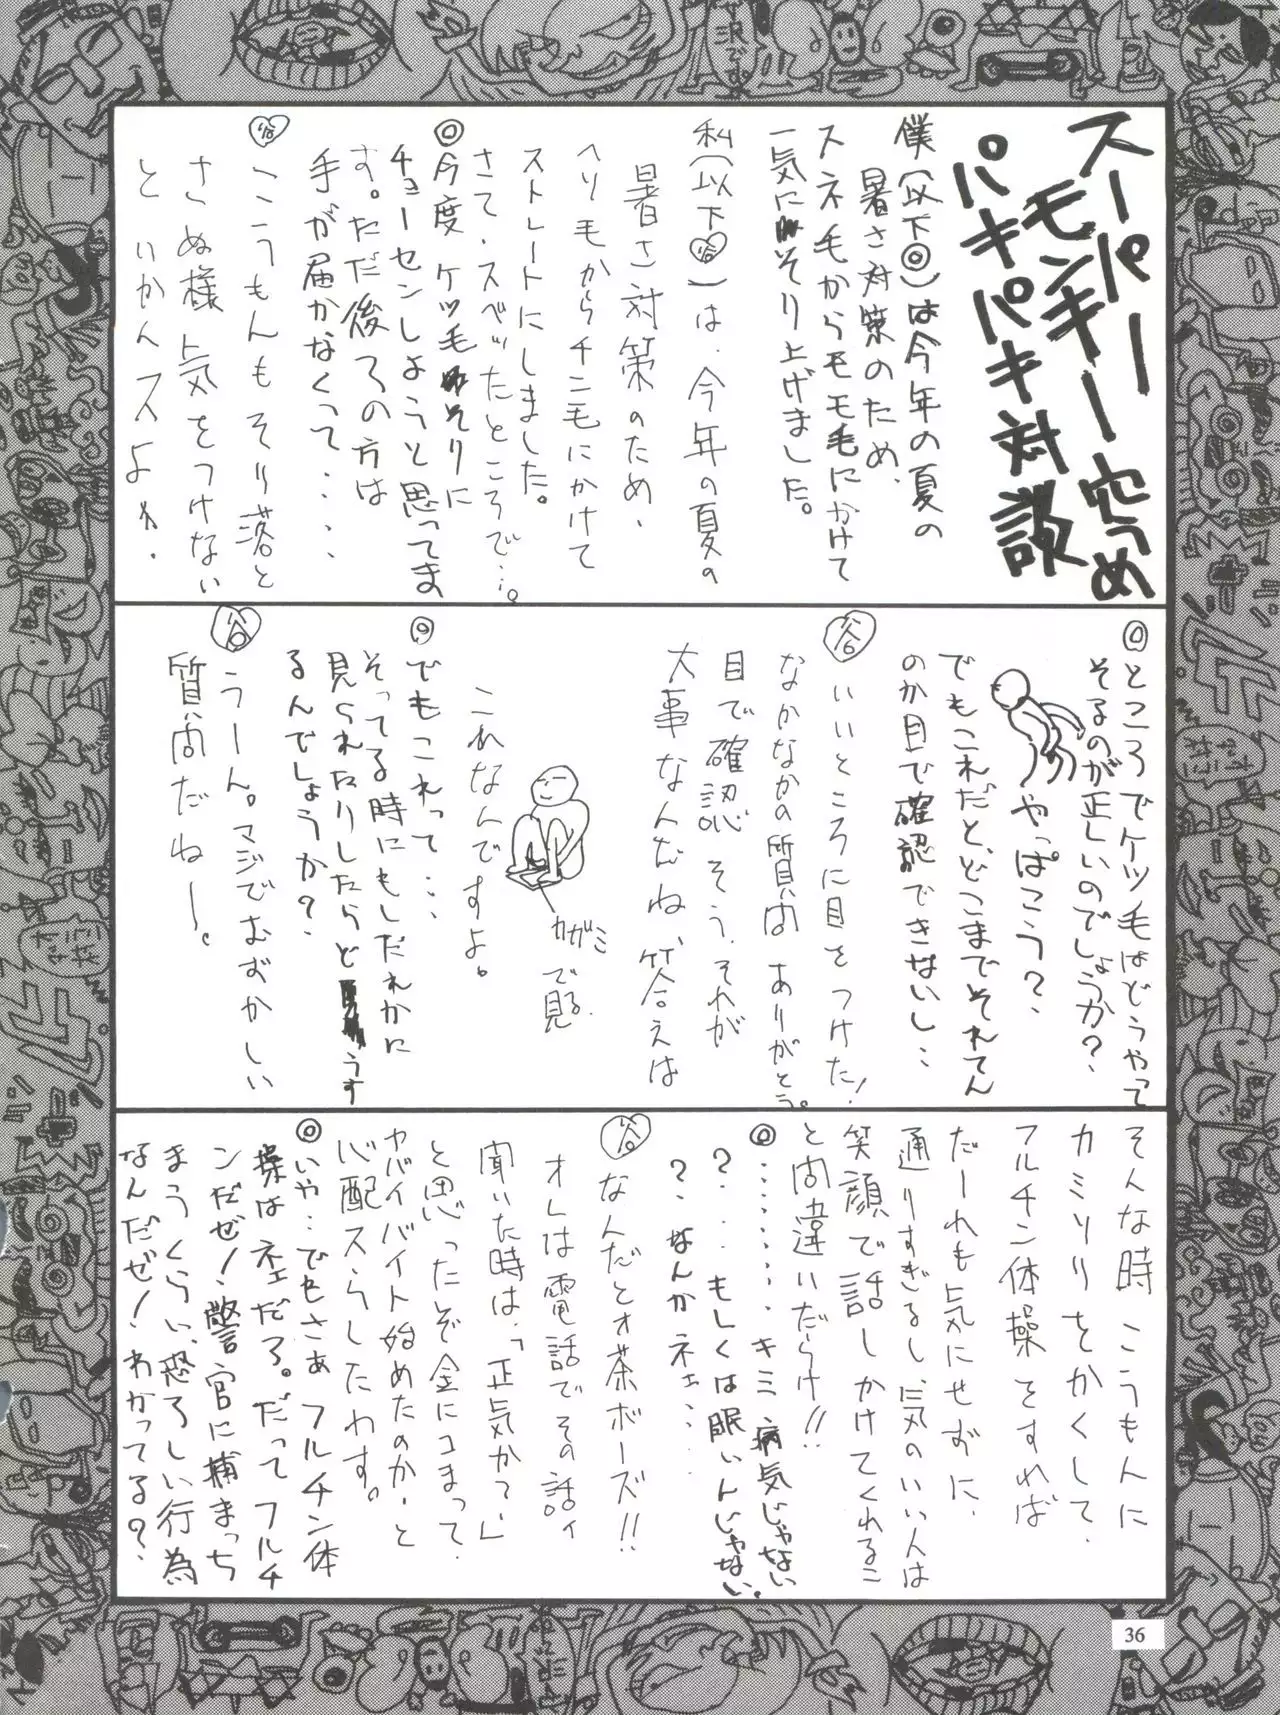 スーパーモンキー穴うめ
パキパキ対談
僕(以下◎)は今年の夏の
暑さ対策のため、
スネ毛からモモ毛にかけて
一気にそり上げました。
私(以下谷)は、今年の夏の
暑さ対策のため、
ヘリ毛からチン毛にかけて
ストレートにしました。
さて、スベッたところで…。
◎今度ケツ毛そりに
チョーセンしようと思ってま
す。ただ後ろの方は
手が届かなくって・・・・
谷 こうもんもそり落と
さぬ様気をつけない
といかんスよネ.
◎ところでケツ毛はどうやって
そるのが正しいのでしょうか?
やっぱこう?、
でもこれだと、どこまでそれてん
のか目で確認できないし…
谷 いいところに目をつけた!
なかなかの質問ありがとう。
目で確認、そう、それが
大事なんだね、答えは
カガミで見る.
これなんですよ。
◎でもこれって…
そってる時にもしだれかに
見られたりしたらどうす
るんでしょうか?
谷 うーん。マジでむずかしい
質問だね〜。
そんな時こうもんに
カミソリをかくして、
フルチン体操をすれば
だーれも気にせずに、
通りすぎるし、気のいい人は
笑顔で話しかけてくれるこ
と間違いだらけ!!
◎・・・・・・・キミ病気じゃない
?・・もしくは眠いんじゃない
?、なんかネェ・・・
谷 なんだとオ茶ボーズ!!
オレは電話でその話ィ
聞いた時は、「正気かって」
と思ったぞ金にコまって
ヤバイバイト始めたのか、と
心配スらしたわす。
◎いや…でもさぁフルチン体
操はネェだろ。だってフルチ
ンだぜ!、警官に捕まっち
まうくらい、恐ろしい行為
なんだぜ!わかってる?.
36